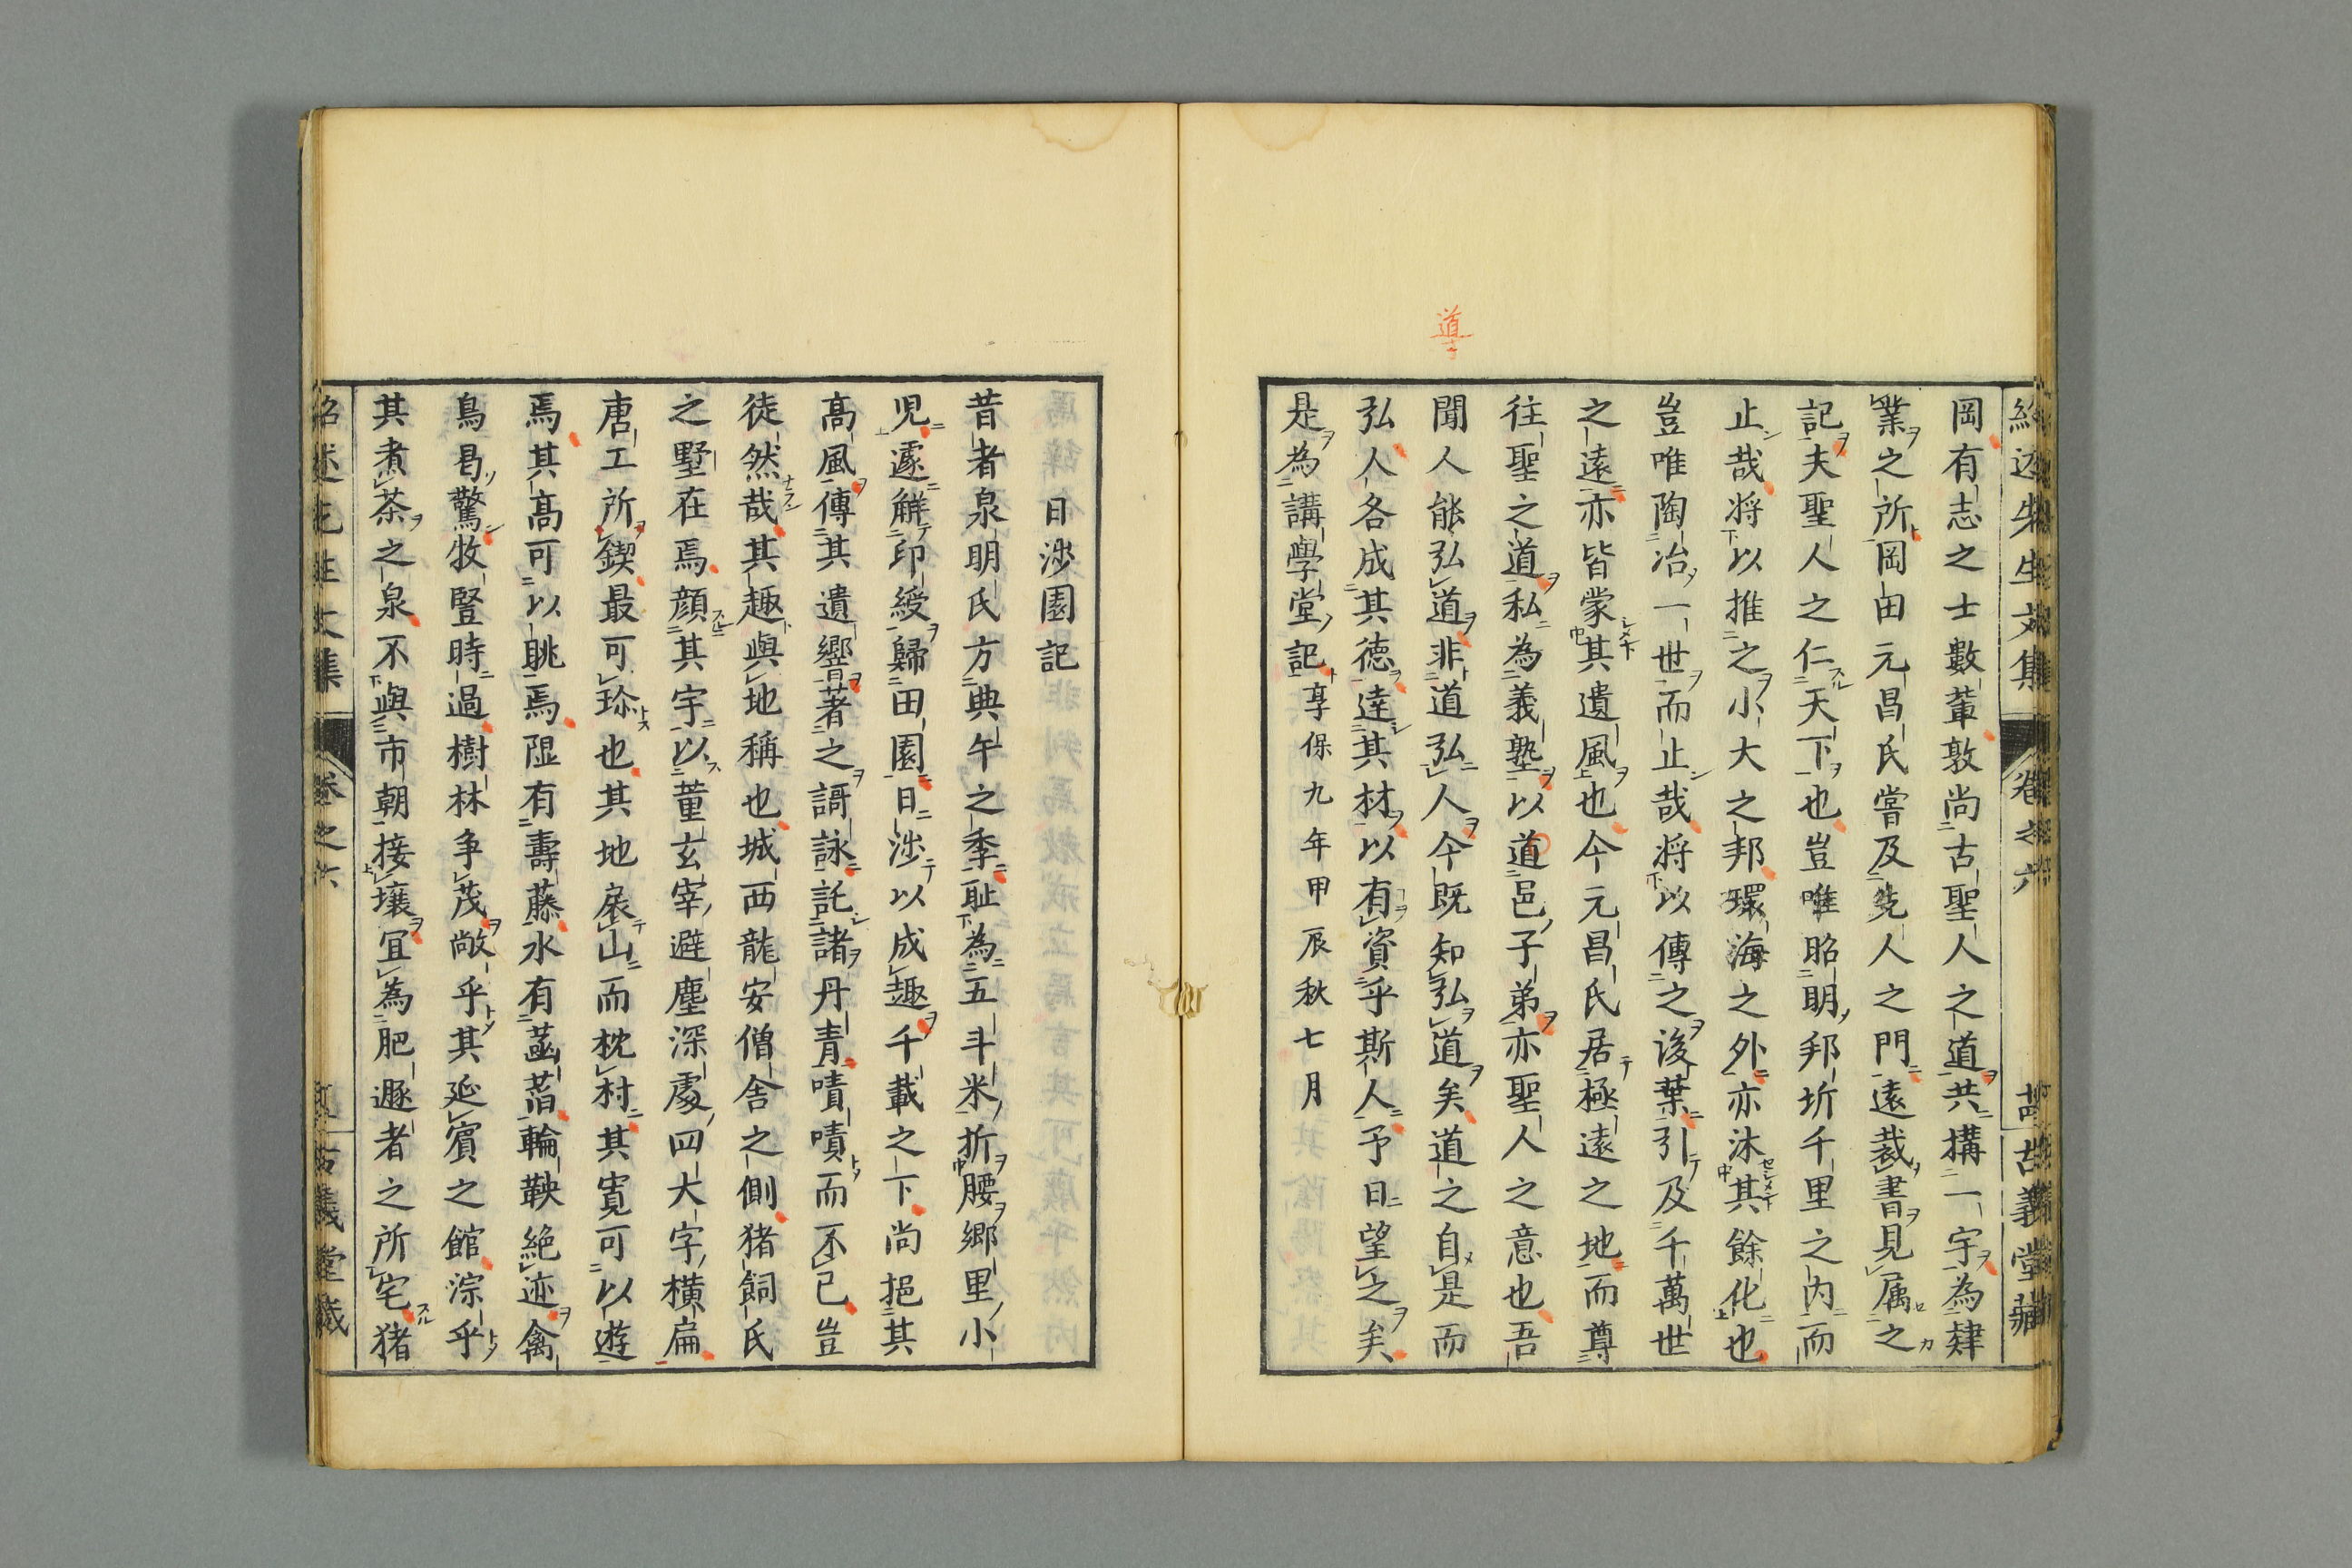 紹述先生文集 卷之六 古義堂藏
岡有志之士數輩敦尚古聖人之道共構一宇為肄
業之所岡田元昌氏嘗及先人之門遠裁書見属之
記夫聖人之仁天下也豈唯昭明邦圻千里之内而
止哉将以推之小大之邦環海之外亦沐其餘化也
豈唯陶冶一世而止哉将以傳之後葉引及千萬世
之遠亦皆蒙其遺風也今元昌氏居極遠之地而尊
往聖之道私為義塾以道邑子弟亦聖人之意也吾
道
聞人能弘道非道弘人今既知弘道矣道之自是而
弘人各成其徳達其材以有資乎斯人予日望之矣
是為講學堂記享保九年甲辰秋七月
日涉園記
昔者泉明氏方典午之季耻為五斗米折腰郷里小
児遽觧印綬歸田園日涉以成趣千載之下尚挹其
髙風傳其遺響著之謌詠託諸丹青嘖嘖而不已豈
徒然哉其趣與地稱也城西龍安僧舎之側猪飼氏
之墅在焉顔其宇以董玄宰避塵深處四大字横扁
唐工所鍥最可珎也其地扆山而枕村其寛可以遊
焉其髙可以眺焉隰有壽藤水有菡萏輪鞅絶迹禽
鳥曷驚牧豎時過樹林争茂敞乎其延賓之館淙乎
其煮茶之泉不與市朝接壤宜為肥遯者之所宅猪
紹述先生文集 卷之六 古義堂藏